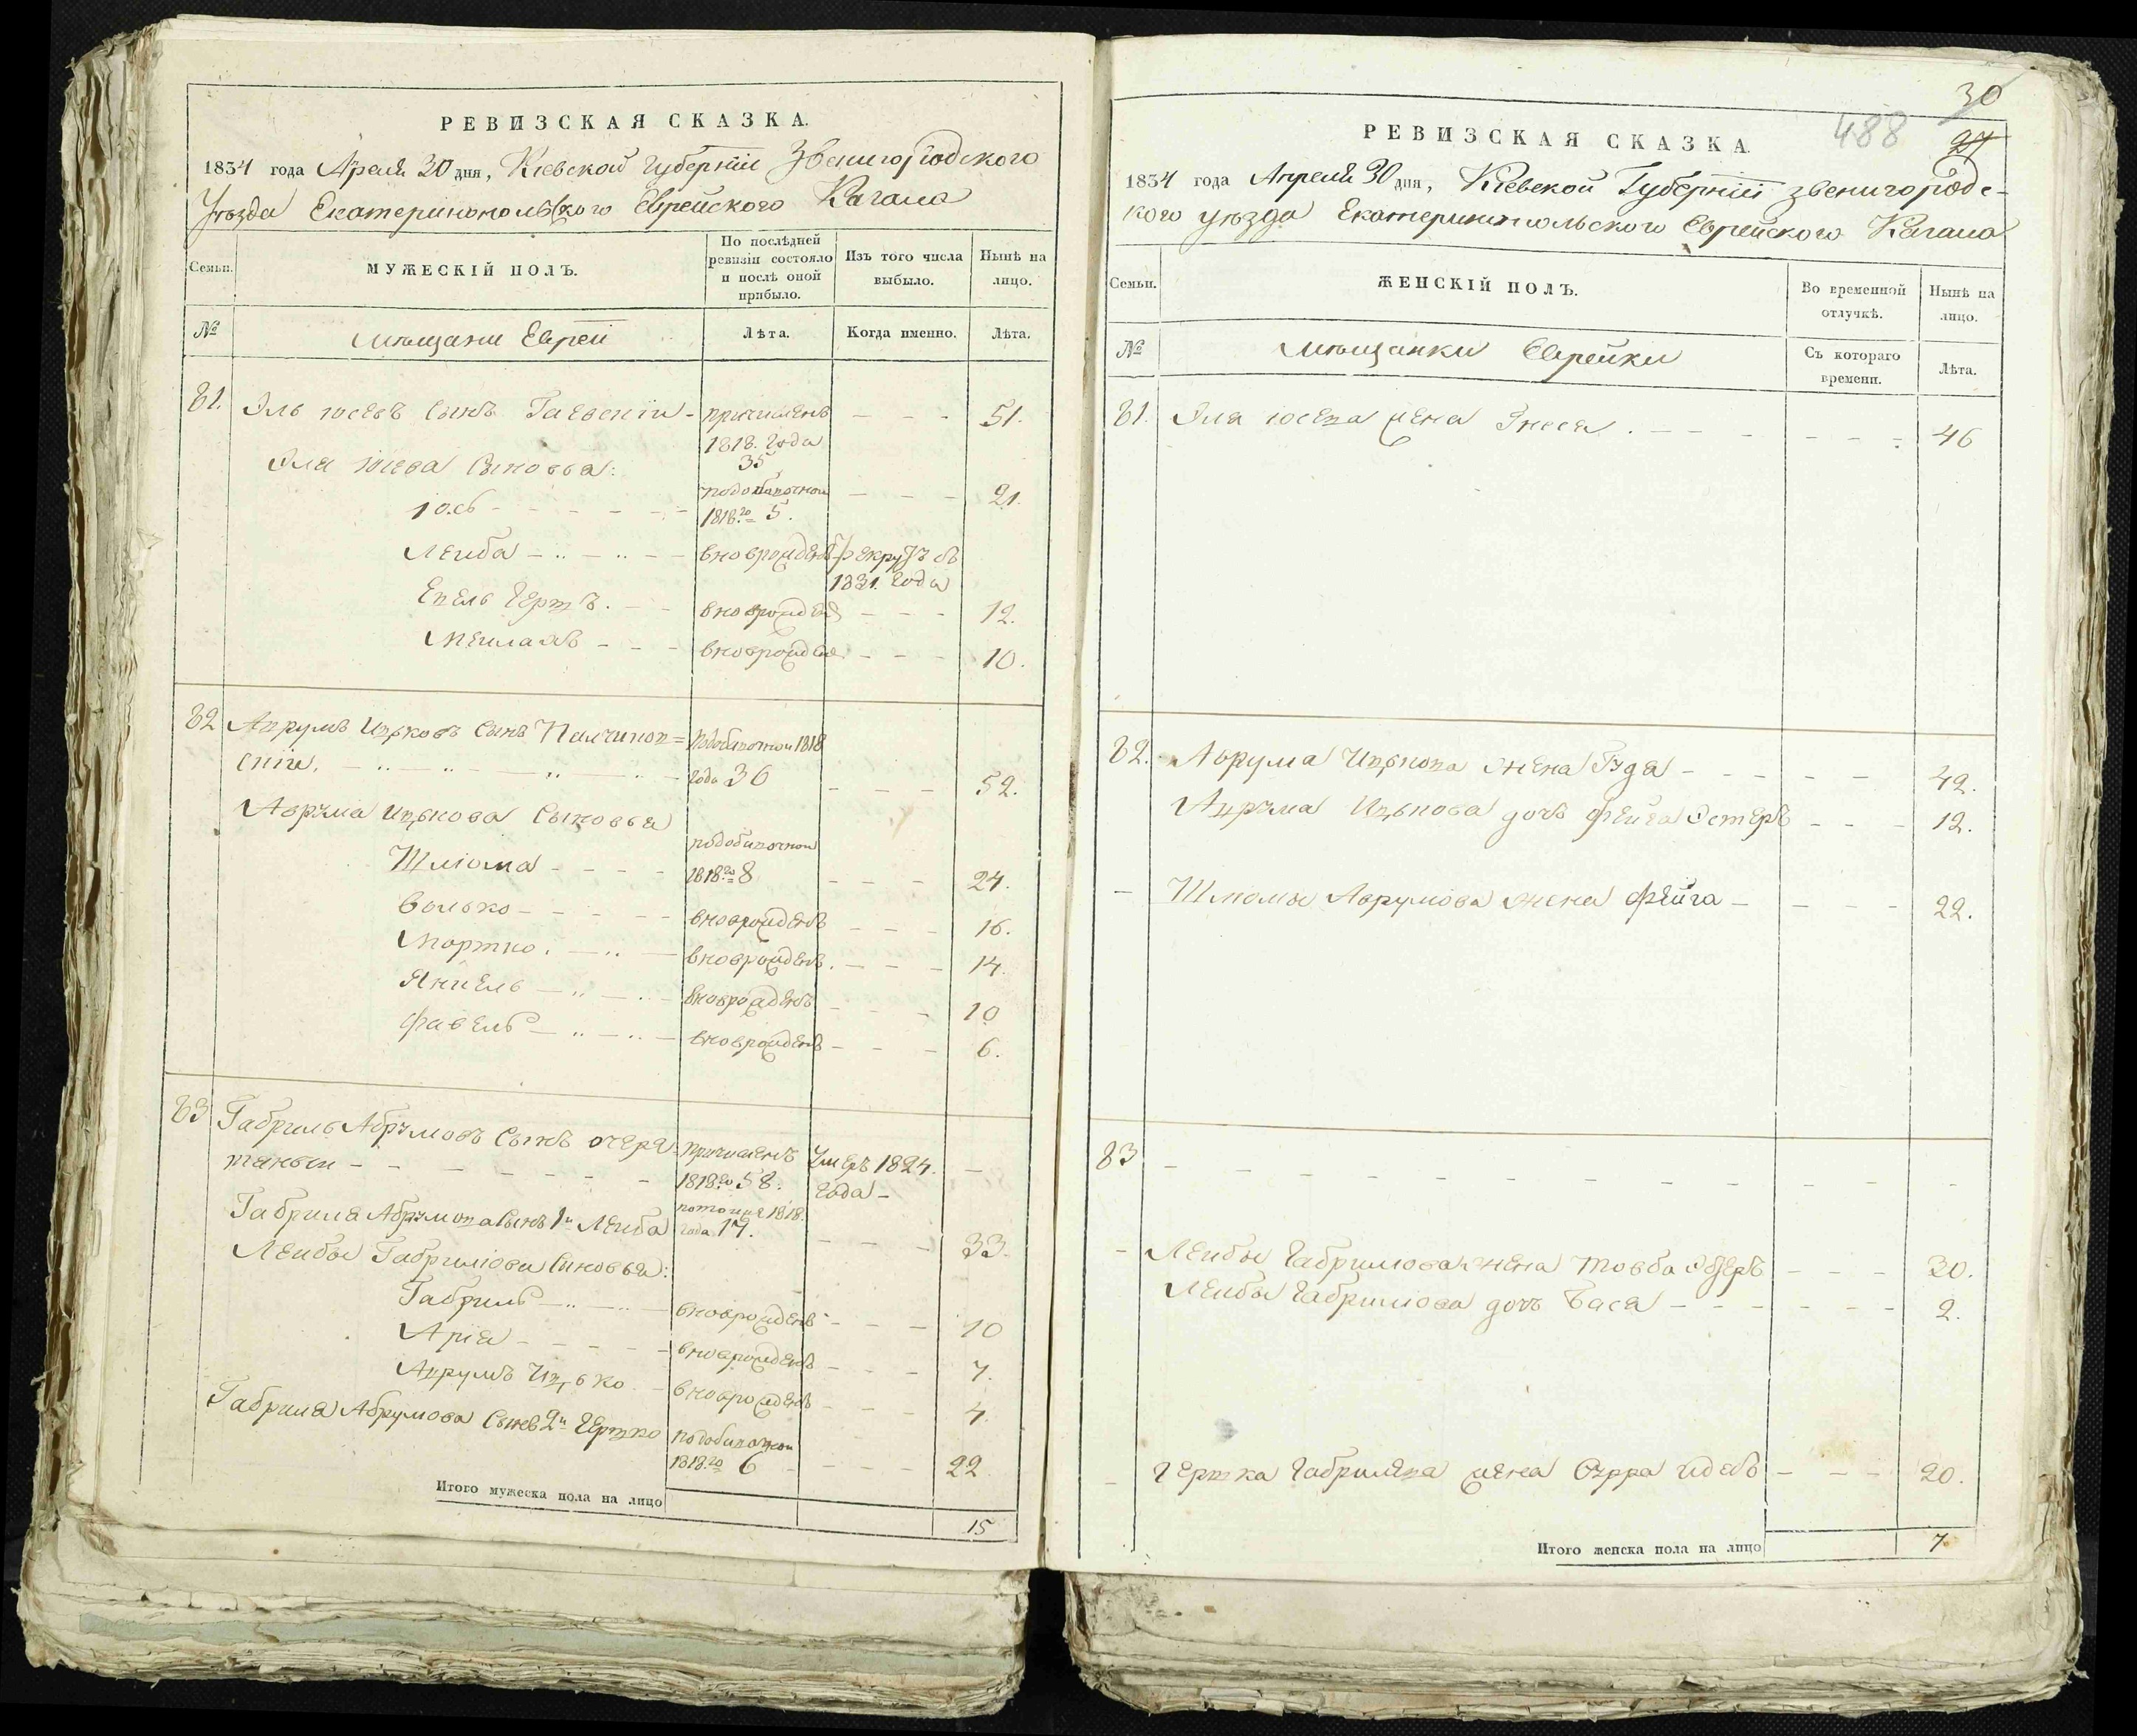 РЕВИЗСКАЯ СКАЗКА.
1834 года Апреля 30 дня, Киевской Губернiи Звенигородского
Уѣзда Екатеринопольского Еврейского Кагала
Семьи. МУЖЕСКIЙ ПОЛЪ. По послѣдней ревизiи состояло и послѣ оной прибыло. Изъ того числа выбыло. Нынѣ на лицо.
№ Мѣщани Евреи Лѣта. Когда именно. Лѣта.
81. Эль Юсевъ Сынъ - причисленъ 1818. года 35 - - - 51.
Эля Юсева Сыновья:
Юсь - - - - - подобапочнои 1818го 5. - - - 21.
Лейба - - - вноврожденъ рекрутъ въ 1831. года
Гершъ. - - вноврожден - - - 12.
Меилахъ - - - вноврожден - - - 10.
82 Аврумъ Ицковъ Сынъ Палчинов=
скiи. - - - подобапочнои 1818 года 36 - - - 52.
Аврума Ицькова Сыновья
Шлiома - - - - подобапочнои 1818го 8 - - - 24.
Волько - - - - вноврожденъ - - - 16.
Мортко. - - вноврожденъ. - - - 14.
Янкель - - вноврожденъ - - - 10
Фавель - - вноврожденъ - - - 6.
83 Габриль Абрумовъ Сынъ Очере=
тяныи - - - - причисленъ 1818го 58. Умеръ 1824. года - -
Габриля Абрумова Сынъ 1й Лейба 1818. года 17. - - - 33.
Лейбы Габрилiова Сыновья:
Габриль - - вноврожденъ - - - 10
Арiя - - - - - вноврожденъ - - - 7.
Аврумъ Ицько - вноврожденъ - - - 4.
Габриля Абрумова Сынъ 2й Гершко подобапочнои 1818го 6 - - - - 22.
Итого мужеска пола на лицо 15
30
488 27
РЕВИЗСКАЯ СКАЗКА
1834 года Апреля 30 дня, Кiевской Губернiи Звенигородс-
кого уѣзда Екатеринопольского Еврейского Кагала
Семьи. ЖЕНСКIЙ ПОЛЪ. Во временной отлучкѣ. Нынѣ на лицо.
№ Мѣщанки Еврейки Съ котораго времени. Лѣта.
81. Эля Юсева жена Энеся. - - - - - - 46
82. Аврума Ицкова жена Гуда - - - - - 42.
Аврума Ицькова дочь Фейга Эстеръ - - - 12.
- Шлiомы Аврумова жена Фейга - - - - 22.
83 - - - - - - - - - - - -
- Лейбы Габрилова жена Товба Эстеръ - - - 30.
Лейбы Габрилiова дочь Бася - - - - - - 2.
- Гершка Габрилева жена Сурра - - - 20.
Итого женска пола на лицо 7.